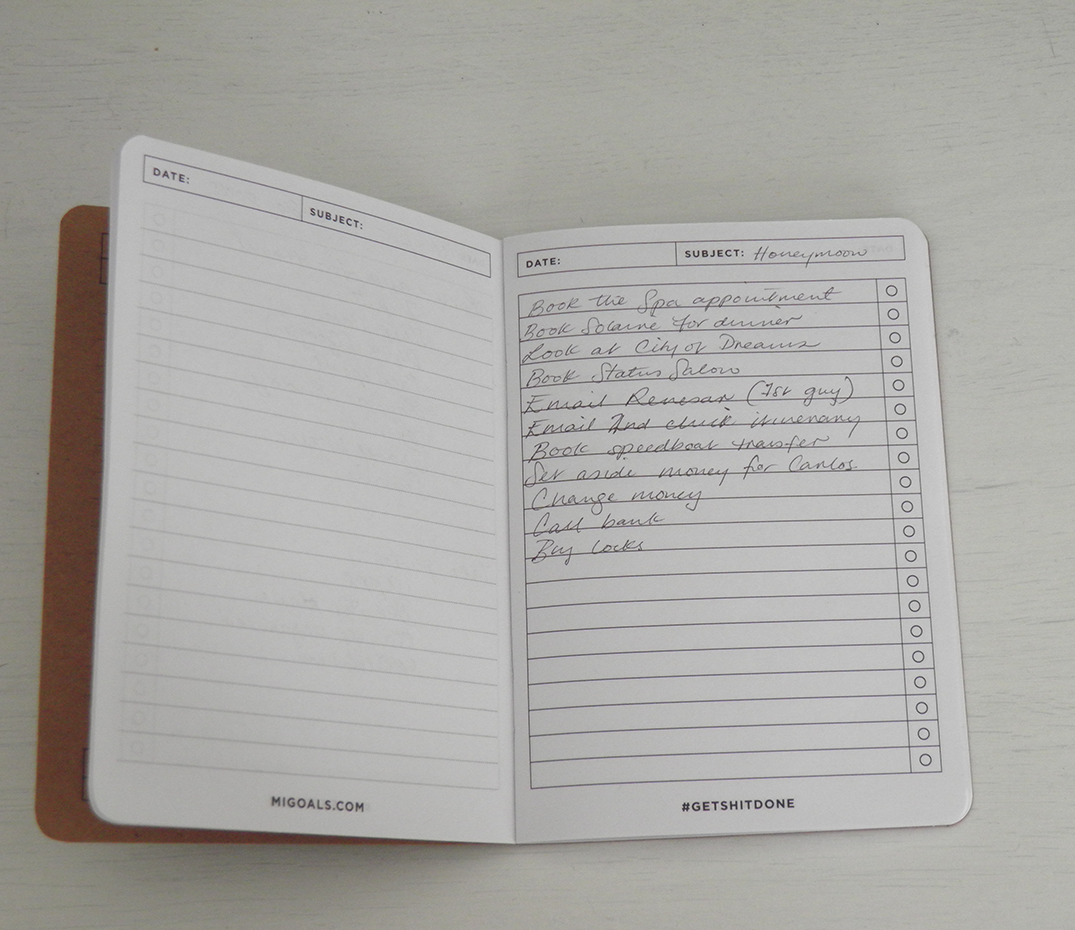 DATE:
SUBJECT:
MIGOALS.COM
DATE:
SUBJECT: Honeymoon
Book the Spa appointment
Book Solaire for dinner
Look at City of Dreams
Book Status Salon
Email (1st guy)
Email 2nd itinerary
Book speedboat transfer
Set aside money for Carlos
Change money
Call bank
Buy locks
#GETSHITDONE